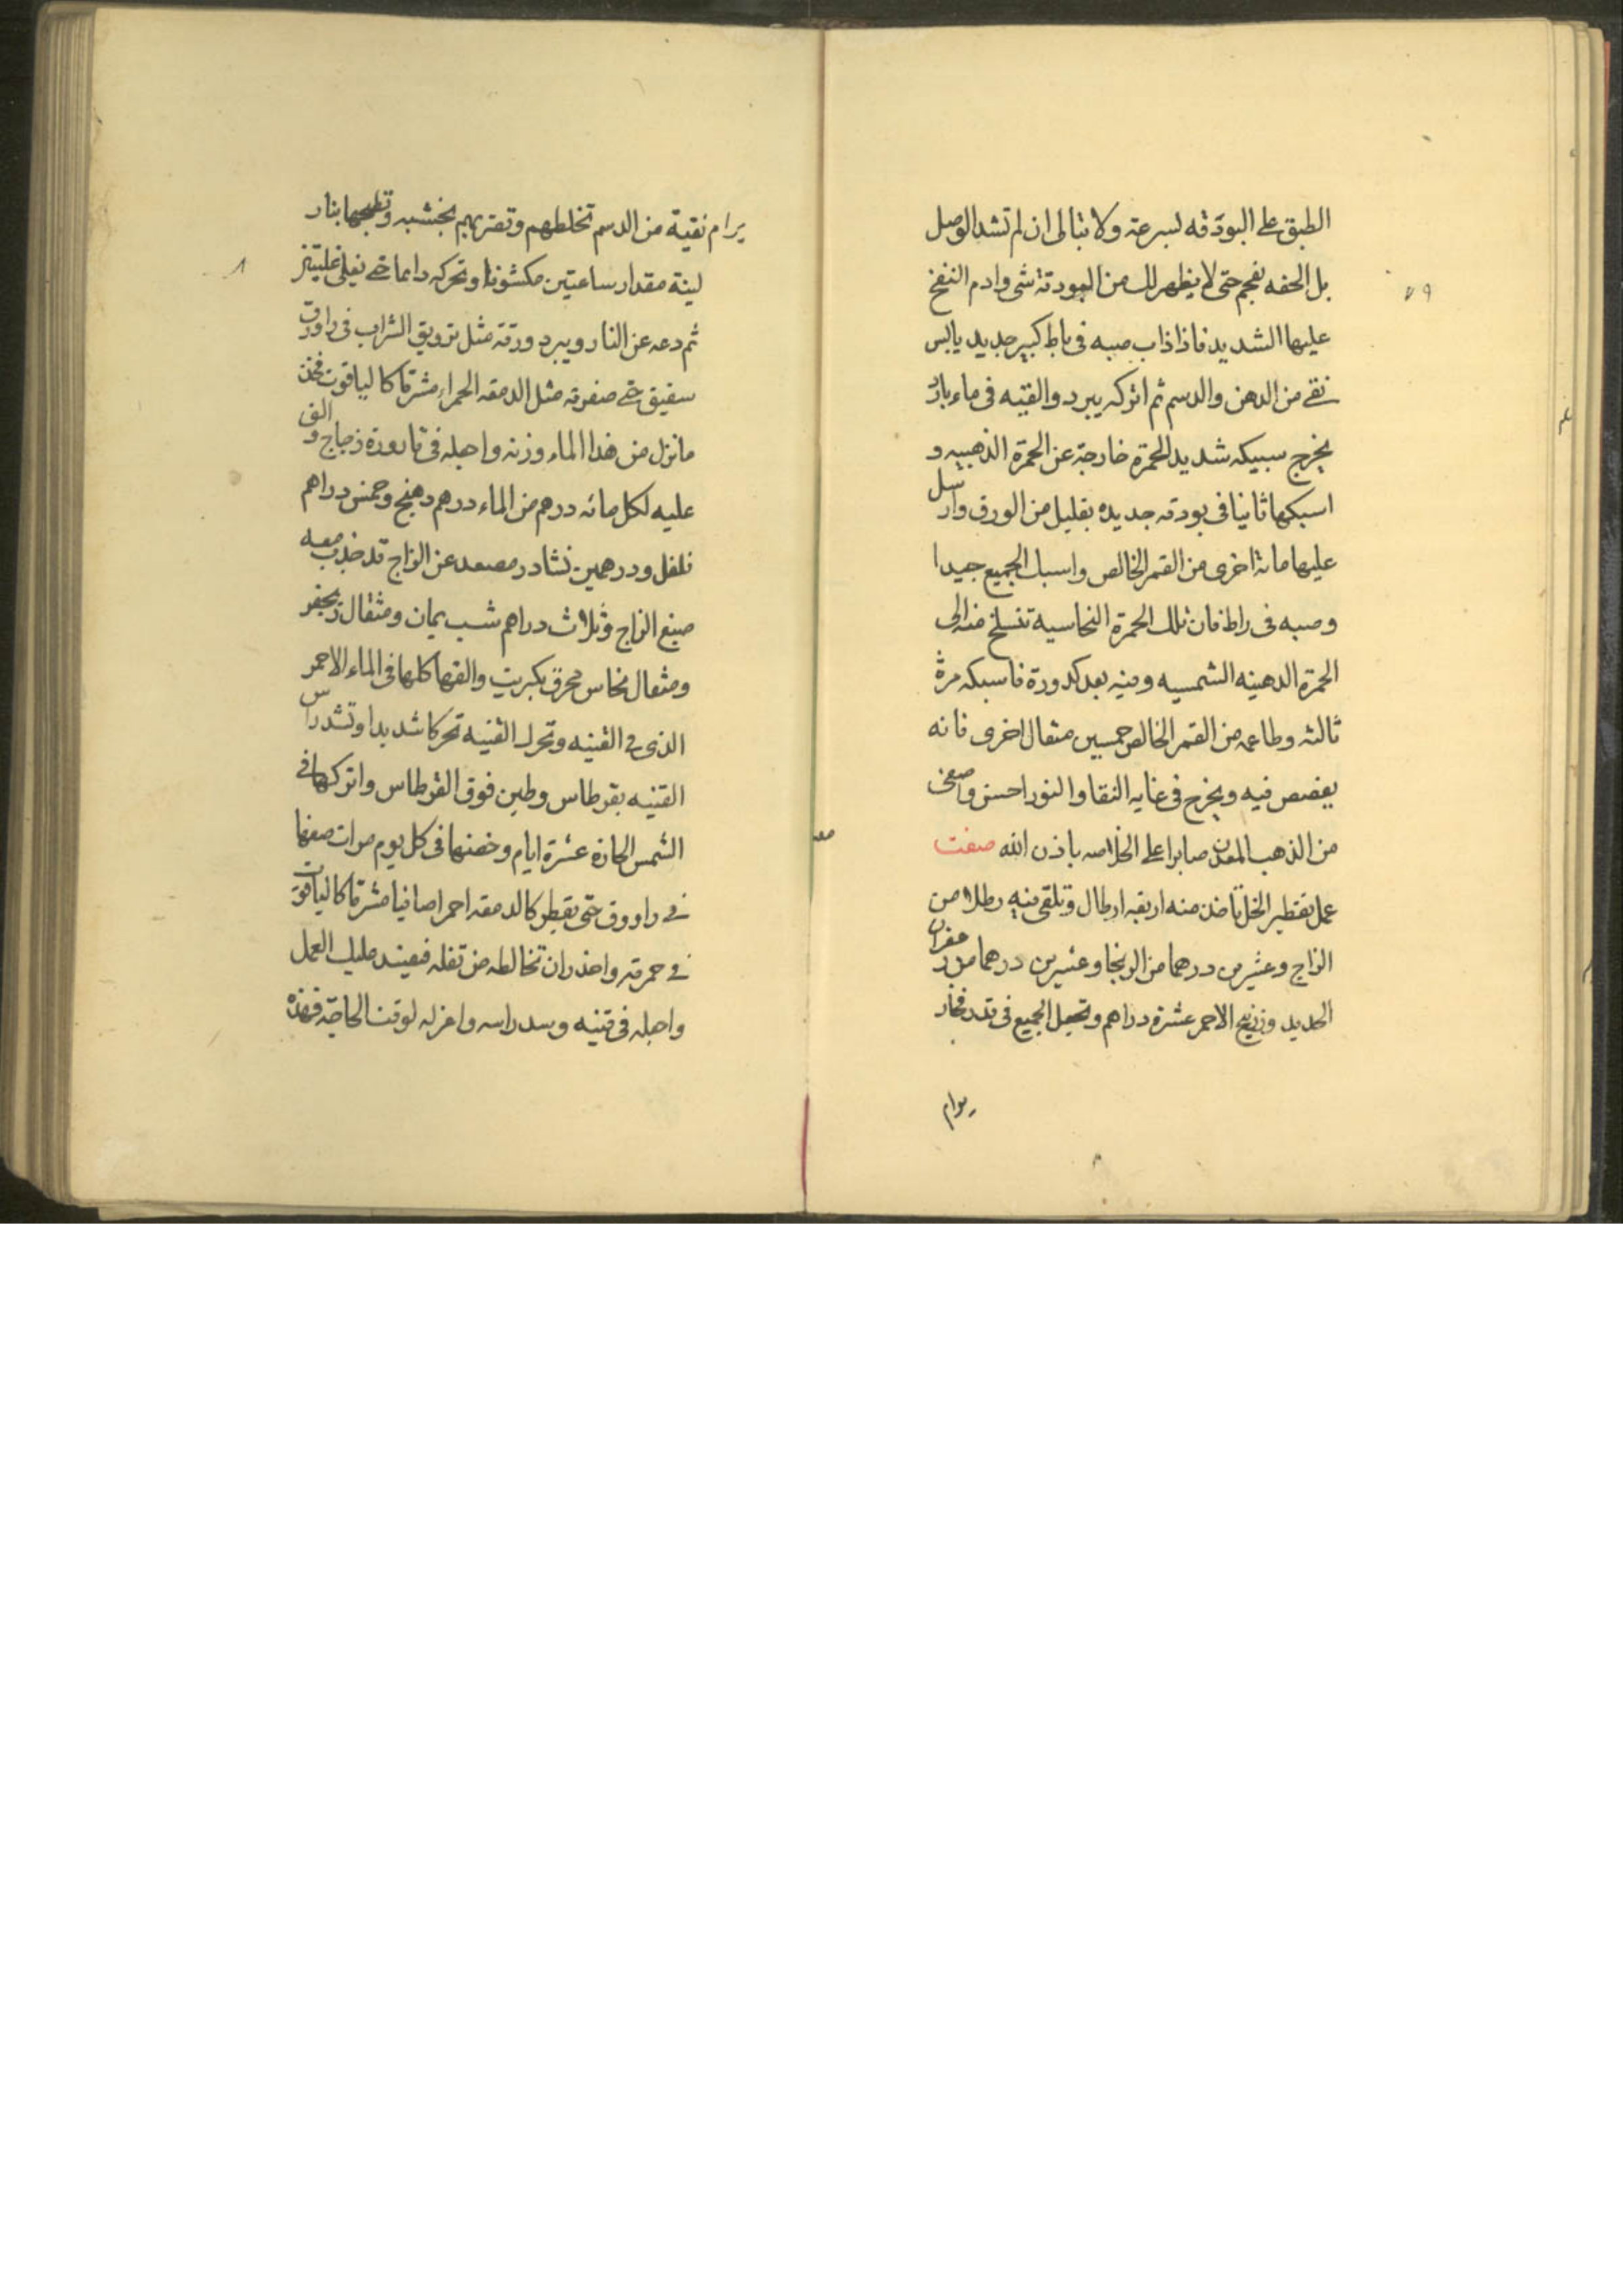 الطبق على البودقه بسرعة ولا تبالى ان لم تشد الوصل
بل الحفه بفحم حتى لا يظهر لك من البودقة شى وادم النفخ
عليها الشديد فاذا ذاب صبه فى راط كبير جديد يابس
نقى من الدهن والدسم ثم اتركه يبرد والقيه فى ماء بارد
يخرج سبيكه شديد الحمرة خارجة عن الحمرة الذهبيه و
اسبكها ثانيا فى بودقه جديده بقليل من الورق وارسل
عليها مائة اخرى من القمر الخالص واسبك الجميع جيدا
وصبه فى راط فان تلك الحمرة النحاسية تنسلخ منه الى
الحمرة الدهينه الشمسيه وفيه بعد كدورة فاسبكه مرة
ثالثه وطاعمه من القمر الخالص خمسين مثقال اخرى فانه
يغصص فيه ويخرج فى غاية النقا والنور احسن واصفى
من الذهب المعدن صابرا على الخلاصه باذن الله صفت
عمل بقطير الخل تاخذ منه اربعة ارطال وتلقى فيه رطلا من
الزاج وعشرين درهما من الزنجا وعشرين درهما من زعفران
الحديد وزرنيخ الاحمر عشرة دراهم وتجعل الجميع فى قدر فخار
برام
٧٩
برام نقية من الدسم تخلطهم وتضربهم بخشبه وتطبخها بنار
لينة مقدار ساعتين مكشوفا وتحركه دايما حتى يغلى غليتين
ثم دعه عن النار ويبرد ورقه مثل ترويق الشراب فى راووق
سفيق حتى صفرته مثل الدمعه الحمراء مشرقا كالياقوت فخذ
ما نزل من هذا الماء وزنه واجعله فى قارورة زجاج والق
عليه لكل مائه درهم من الماء درهم دهنج وخمس دراهم
فلفل ودرهمين نشادر مصعد عن الزاج قد جذب معه
صبغ الزاج وثلاث دراهم شب يمان ومثقال زنجفر
ومثقال نحاس محرق بكبريت والقها كلها فى الماء الاحمر
الذى فى القنينه وتحرك القنينه تحركا شديدا وتشد راس
القنينه بقرطاس وطين فوق القرطاس واتركها فى
الشمس الحارة عشرة ايام وخضها فى كل يوم مرات صفها
فى راووق حتى يقطر كالدمعه احمرا صافيا مشرقا كالياقوت
فى حمرته واحذر ان تخالطه من تفله فيفسد عليك العمل
واجعله فى قنينه وسد راسه واعزله لوقت الحاجة فهذه